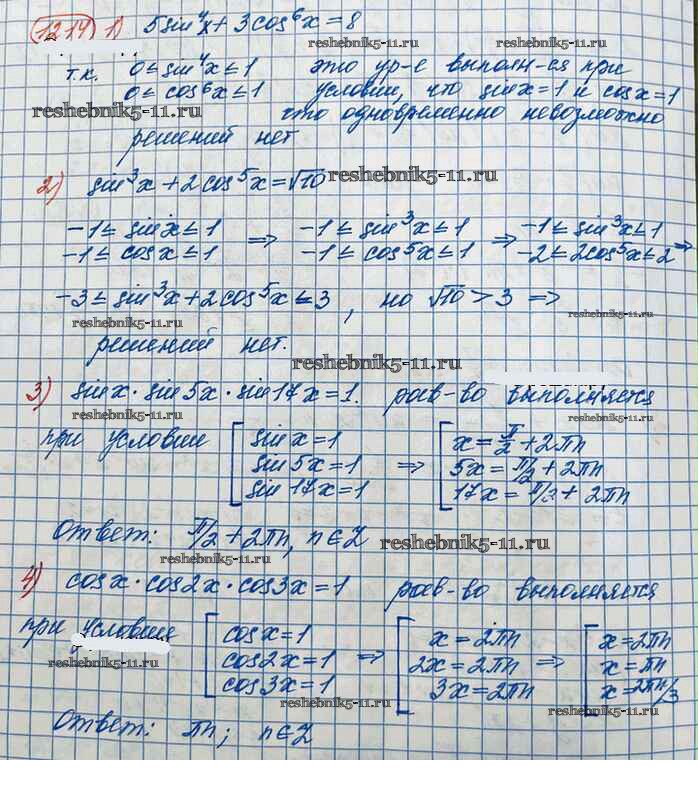 1214) 1) 5sin⁴x + 3cos⁶x = 8
reshebnik5-11.ru reshebnik5-11.ru
т.к. 0 ≤ sin⁴x ≤ 1 это ур-е выполн-ся при
0 ≤ cos⁶x ≤ 1 условии, что sinx = 1 и cosx = 1
reshebnik5-11.ru что одновременно невозможно
решений нет reshebnik5-11.ru
2) sin³x + 2cos⁵x = √10 reshebnik5-11.ru
-1 ≤ sinx ≤ 1 ⇒ -1 ≤ sin³x ≤ 1 ⇒ -1 ≤ sin³x ≤ 1
-1 ≤ cosx ≤ 1 -1 ≤ cos⁵x ≤ 1 -2 ≤ 2cos⁵x ≤ 2 ⇒
-3 ≤ sin³x + 2cos⁵x ≤ 3, но √10 > 3 ⇒
reshebnik5-11.ru reshebnik5-11.ru
решений нет. reshebnik5-11.ru
3) sinx · sin5x · sin17x = 1. рав-во выполняется
reshebnik5-11.ru reshebnik5-11.ru
при условии [ sinx = 1 [ x = π/2 + 2πn
sin5x = 1 ⇒ 5x = π/2 + 2πn
sin17x = 1 17x = π/2 + 2πn
Ответ: π/2 + 2πn, n∈Z reshebnik5-11.ru
reshebnik5-11.ru
4) cosx · cos2x · cos3x = 1 рав-во выполняется
при условии [ cosx = 1 [ x = 2πn [ x = 2πn
reshebnik5-11.ru cos2x = 1 ⇒ 2x = 2πn ⇒ x = πn
cos3x = 1 3x = 2πn x = 2πn/3
reshebnik5-11.ru
Ответ: πn; n∈Z
reshebnik5-11.ru